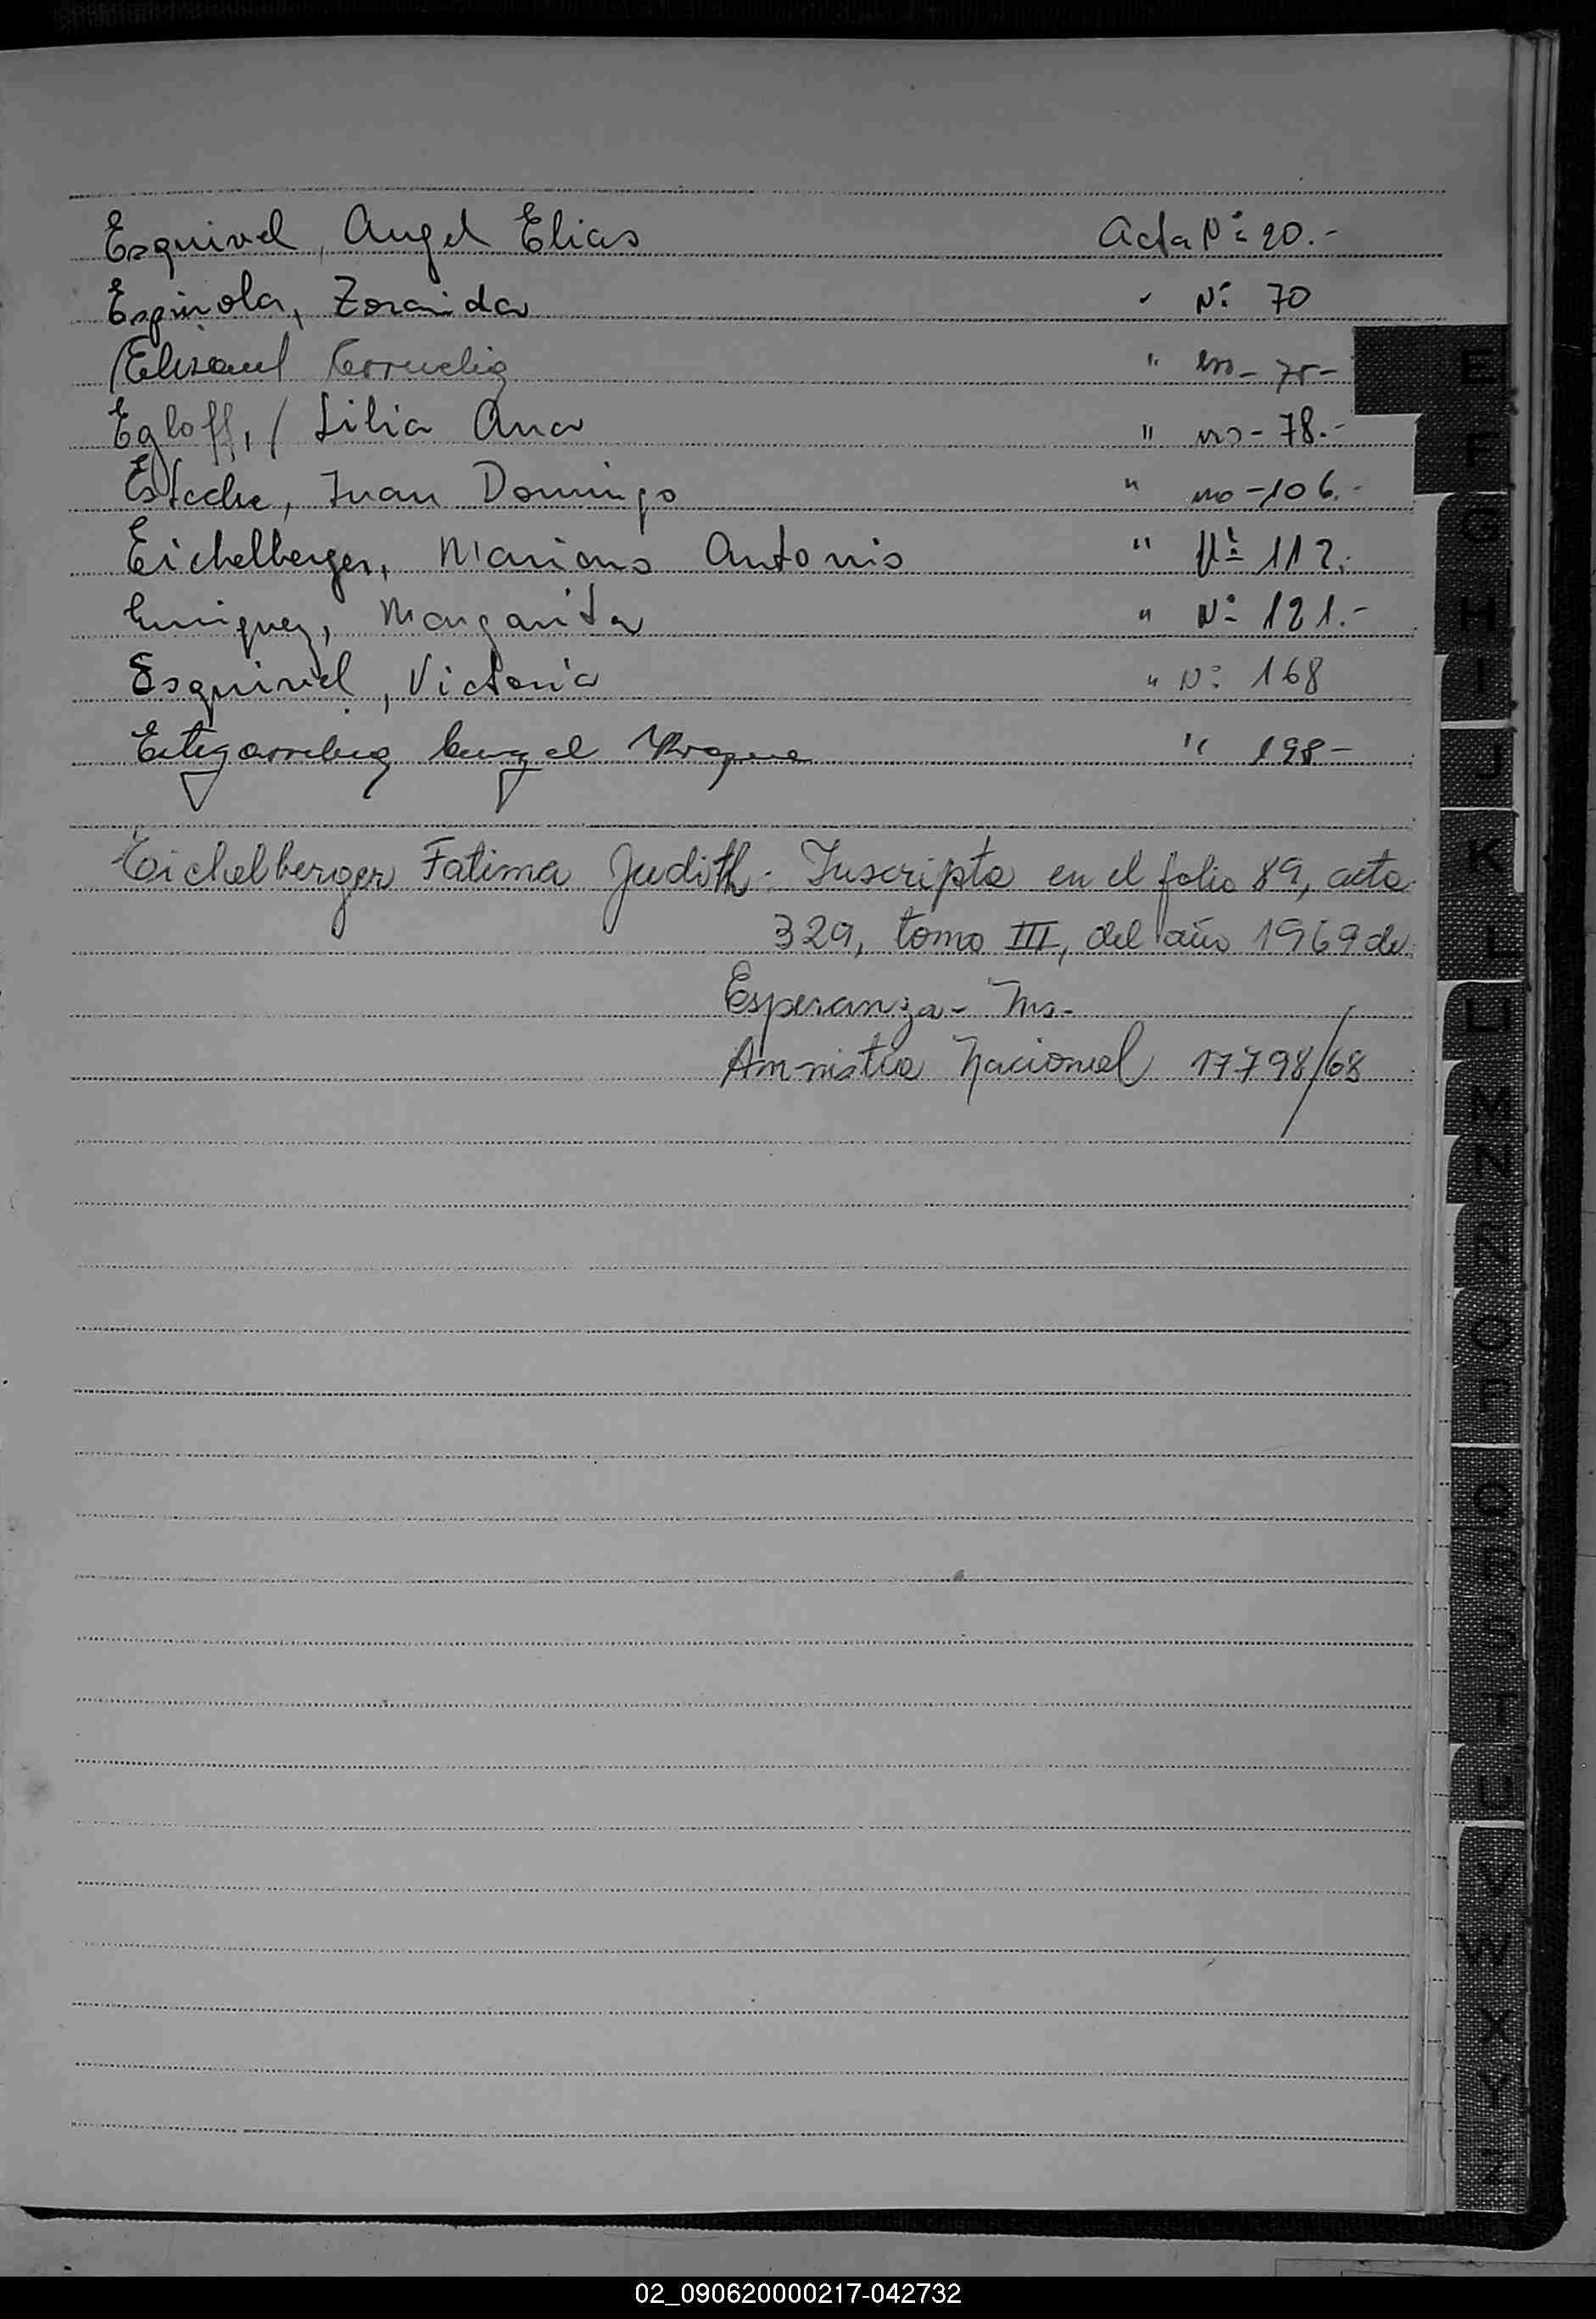 Esquivel, Angel Elias Acta Nº 20.-
Espinola, Zoraida " Nº 70
Cornelia " nro - 75 -
Egloff, Lilia Ana " nro - 78.-
Esteche, Juan Domingo " nro - 106.-
Eichelberger, Mariano Antonio " Nº 112.-
Enriquez, Margarita " Nº 121.-
Esquivel, Victoria " Nº 168
Roque " 198 -
Eichelberger Fatima Judith. Inscripta en el folio 89, acta
329, tomo III, del año 1969 de
Esperanza - Ms.-
Amnistia Nacional 17798/68
E
F
G
H
I
J
K
L
LL
M
N
Ñ
O
P
Q
R
S
T
U
V
W
X
Y
Z
02_090620000217-042732